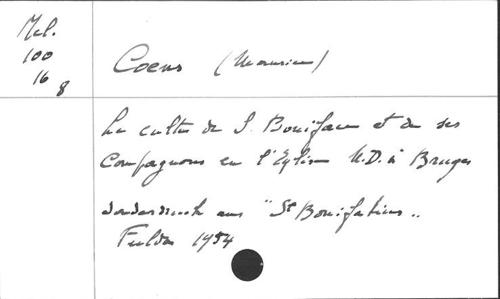 Mél.
100
16
8
Coens (Maurice)
Le culte de S. Boniface et de ses
Compagnons en l'Eglise N.D. à Bruges
Sonderdruck aus "St Bonifatius"
Fulda 1954